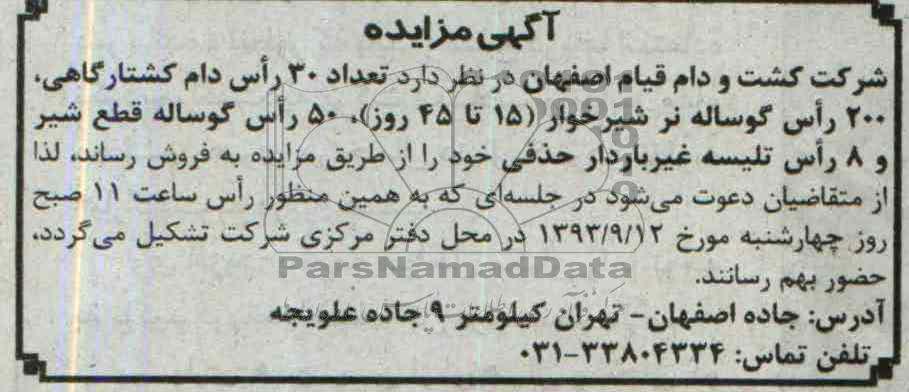 آگهی مزایده
شرکت کشت و دام قیام اصفهان در نظر دارد تعداد ۳۰ رأس دام کشتارگاهی،
۲۰۰ رأس گوساله نر شیرخوار (۱۵ تا ۴۵ روز)، ۵۰ رأس گوساله قطع شیر
و ۸ رأس تلیسه غیرباردار حذفی خود را از طریق مزایده به فروش رساند، لذا
از متقاضیان دعوت می‌شود در جلسه‌ای که به همین منظور رأس ساعت ۱۱ صبح
روز چهارشنبه مورخ ۱۳۹۳/۹/۱۲ در محل دفتر مرکزی شرکت تشکیل می‌گردد،
ParsNamadData
حضور بهم رسانند.
آدرس: جاده اصفهان- تهران کیلومتر ۹ جاده علویجه
تلفن تماس: ۳۳۸۰۴۳۳۴-۰۳۱